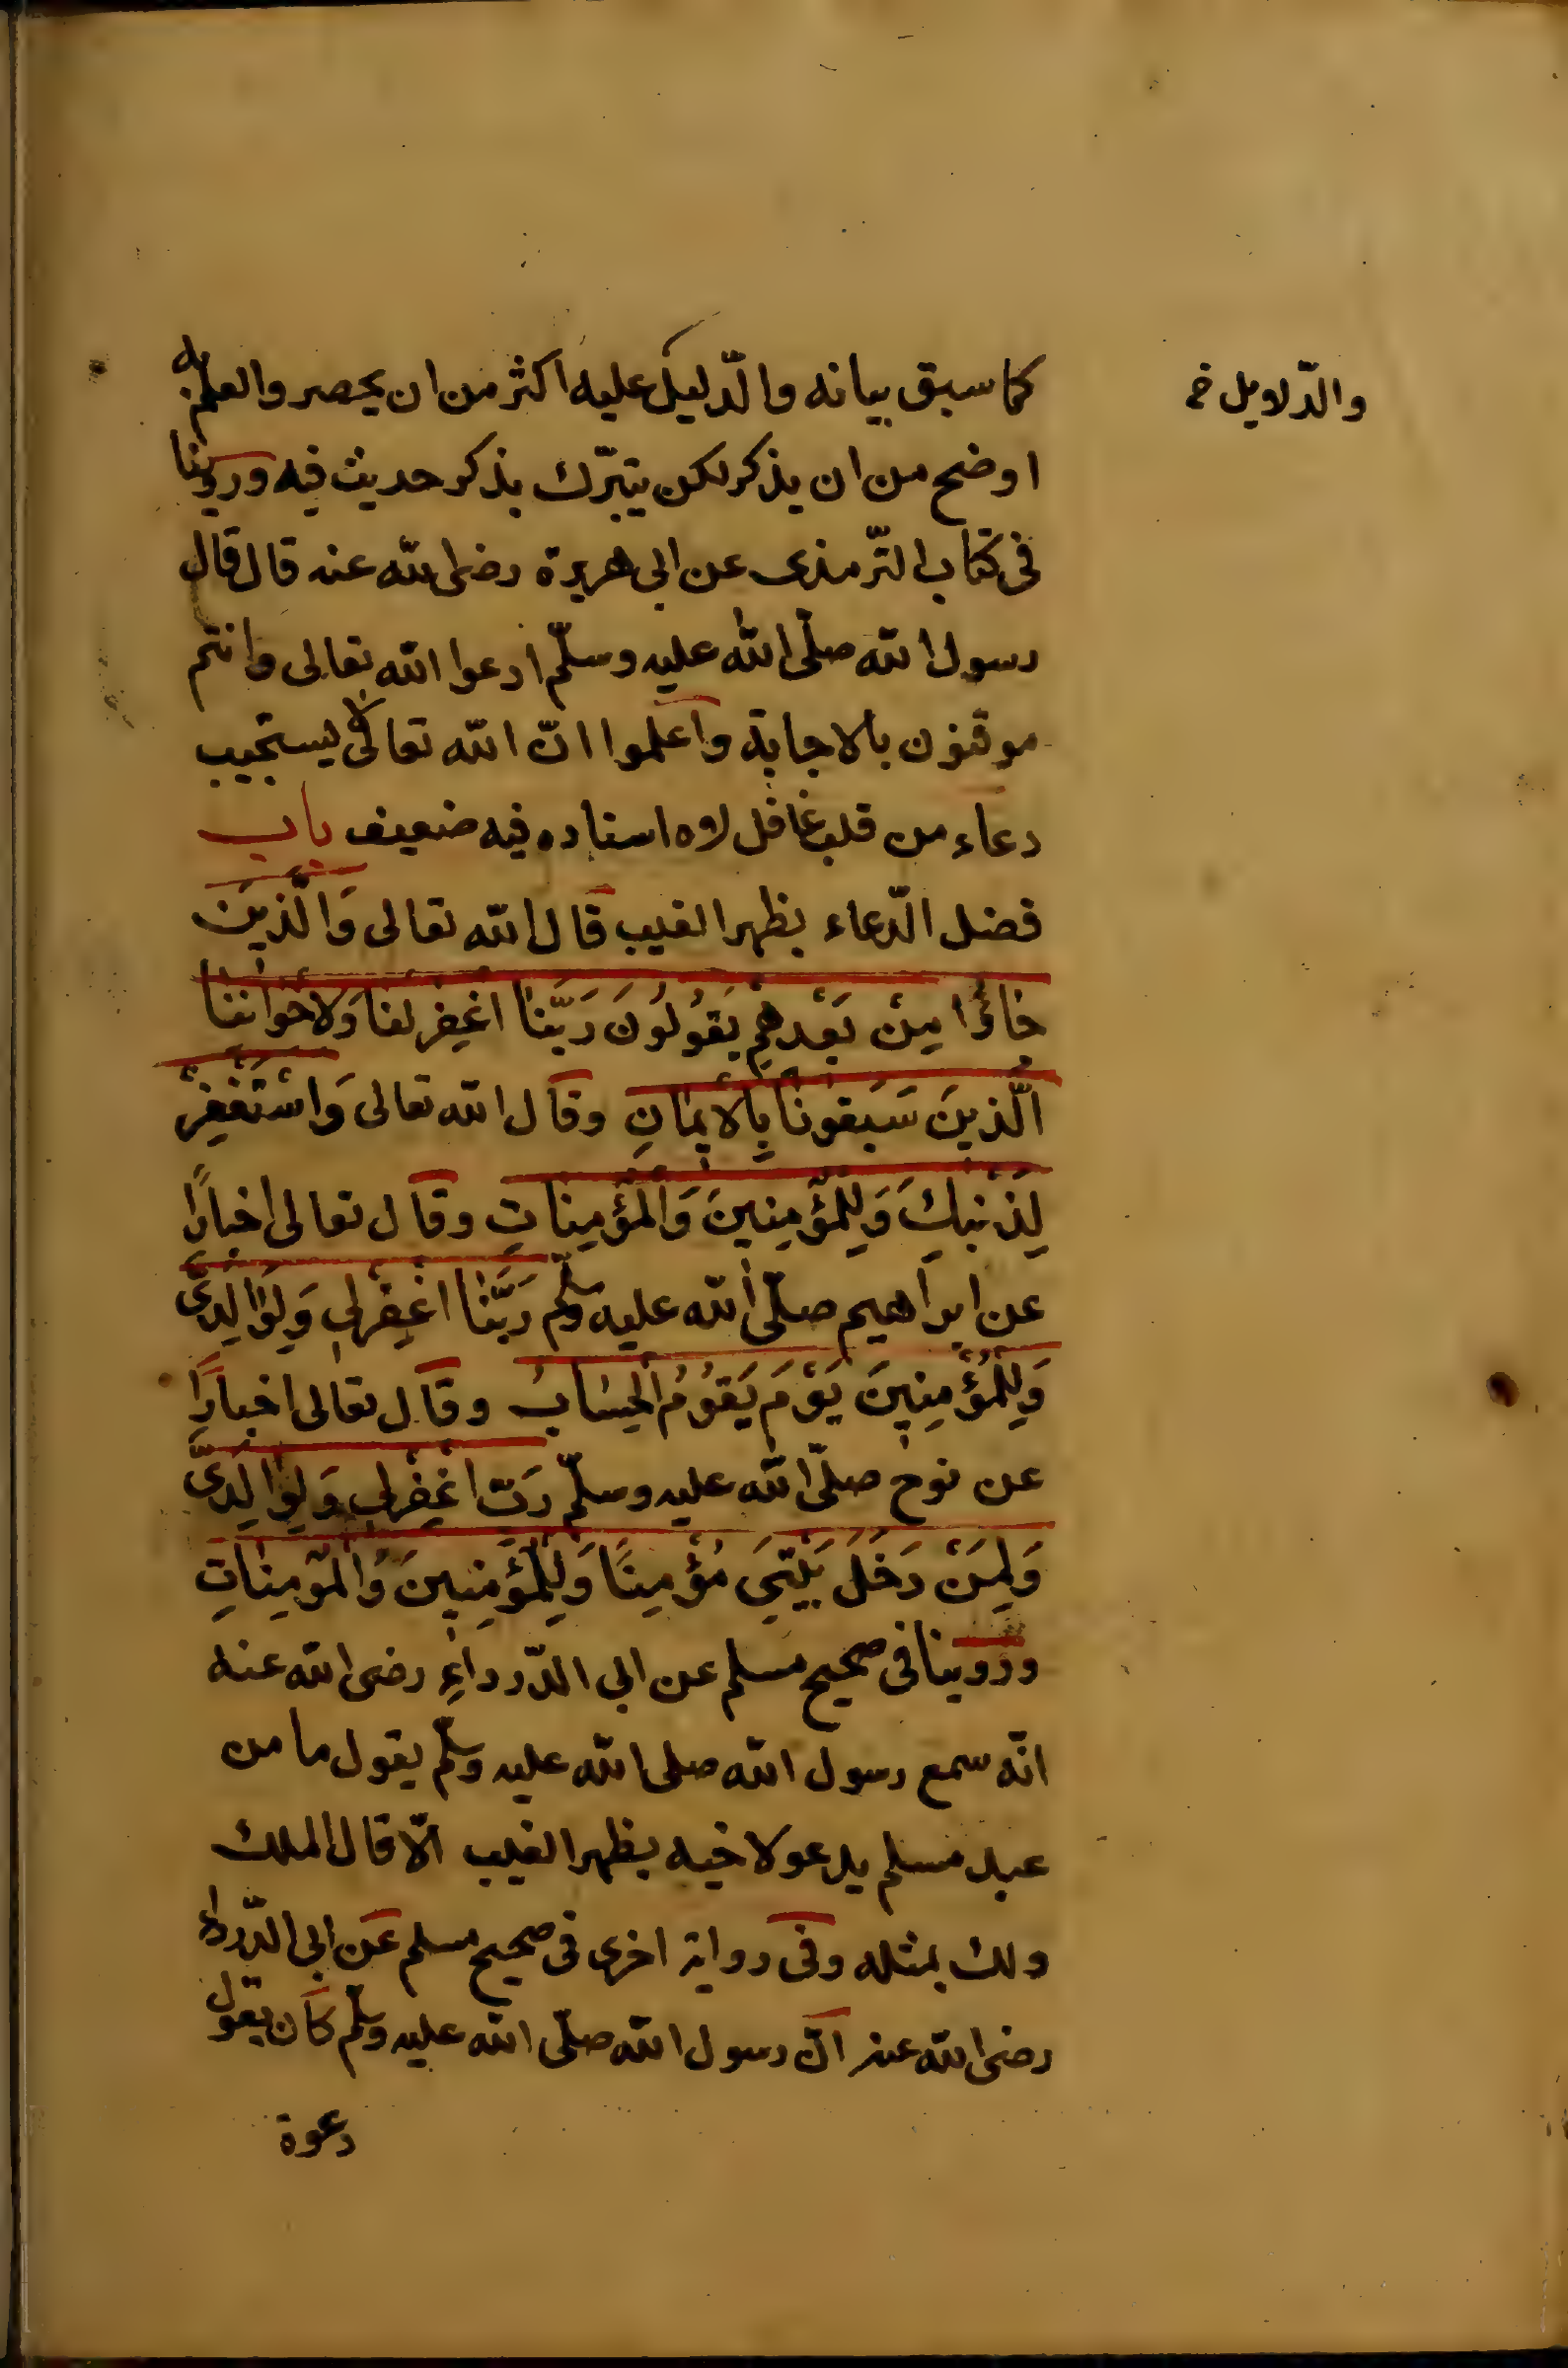 كما سبق بيانه والدّليل عليه اكثر من ان يحصر والعلم به
والدّلايل خ
اوضح من ان يذكر لكن يتبرّك بذكر حديث فيه وروينا
فى كتاب التّرمذى عن ابى هريرة رضى الله عنه قال قال
رسول الله صلّى الله عليه وسلّم ادعوا الله تعالى وانتم
موقنون بالاجابة واعلموا انّ الله تعالى لا يستجيب
دعاء من قلب غافل لاه اسناده فيه ضعيف باب
فضل الدّعاء بظهر الغيب قال الله تعالى وَالَّذِينَ
جَاؤُا مِنْ بَعْدِهِمْ يَقُولُونَ رَبَّنَا اغْفِرْ لَنَا وَلِاخْوَانِنَا
الَّذِينَ سَبَقُونَا بِالْاِيمَانِ وقال الله تعالى وَاسْتَغْفِرْ
لِذَنْبِكَ وَلِلْمُؤْمِنِينَ وَالْمُؤْمِنَاتِ وقال تعالى اخبارًا
عن ابراهيم صلّى الله عليه وسلّم رَبَّنَا اغْفِرْلِى وَلِوَالِدَىَّ
وَلِلْمُؤْمِنِينَ يَوْمَ يَقُومُ الْحِسَابُ وقال تعالى اخبارًا
عن نوح صلّى الله عليه وسلّم رَبِّ اغْفِرْلِى وَلِوَالِدَىَّ
وَلِمَنْ دَخَلَ بَيْتِىَ مُؤْمِنًا وَلِلْمُؤْمِنِينَ وَالْمُؤْمِنَاتِ
وروينا فى صحيح مسلم عن ابى الدّرداءِ رضى الله عنه
انّه سمع رسول الله صلى الله عليه وسلّم يقول ما من
عبد مسلم يدعو لاخيه بظهر الغيب الّا قال الملك
ولك بمثله وفى رواية اخرى فى صحيح مسلم عن ابى الدّرداء
رضى الله عنه انّ رسول الله صلّى الله عليه وسلّم كان يقول
دعوة